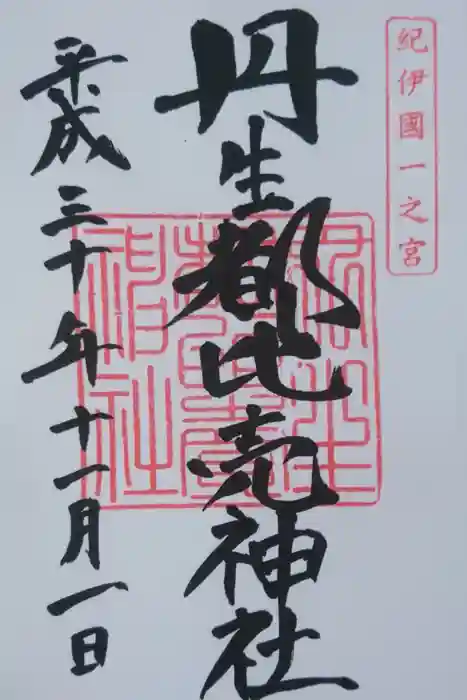 紀伊國一之宮
丹生都比売神社
平成三十年十一月一日